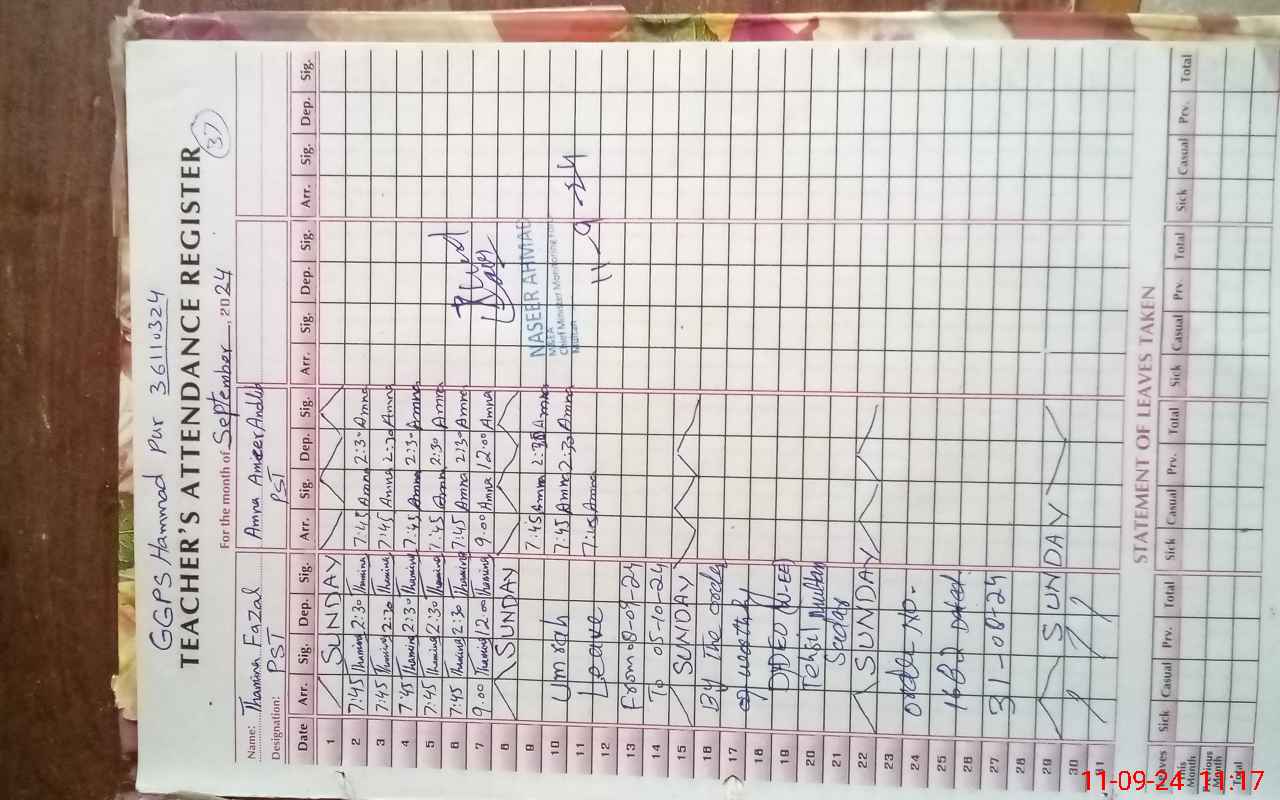 GGPS Hammad Pur 36110324
TEACHER'S ATTENDANCE REGISTER
37
For the month of September, 2024
Name: Thamina Fazal Amna Ameer
Designation: PST PST
Date Arr. Sig. Dep. Sig. Arr. Sig. Dep. Sig. Arr. Sig. Dep. Sig. Arr. Sig. Dep. Sig.
1 SUNDAY
2 7:45 Thamina 2:30 Thamina 7:45 Amna 2:30 Amna
3 7:45 Thamina 2:30 Thamina 7:45 Amna 2:30 Amna
4 7:45 Thamina 2:30 Thamina 7:45 Amna 2:30 Amna
5 7:45 Thamina 2:30 Thamina 7:45 Amna 2:30 Amna
6 7:45 Thamina 2:30 Thamina 7:45 Amna 2:30 Amna
7 9:00 Thamina 12:00 Thamina 9:00 Amna 12:00 Amna
8 SUNDAY
9 7:45 Amna 2:30 Amna
NASEER AHMAD
MEA
Chief Minister Monitoring
Multan
10 Umrah 7:45 Amna 2:30 Amna
11 Leave 7:45 Amna
11-9-24
12
13 From 08-09-24
14 To 05-10-24
15 SUNDAY
16 By The order
17
18
19 DYDEO (W-EE)
20 Tehsil Multan
21 Saddar
22 SUNDAY
23
24 order No.
25
26 1682 Dated.
27 31-08-24
28
29 SUNDAY
30
31
STATEMENT OF LEAVES TAKEN
Leaves Sick Casual Prv. Total Sick Casual Prv. Total Sick Casual Prv Total Sick Casual Prv. Total
This Month
Previous Month
Total
11-09-24 11:17